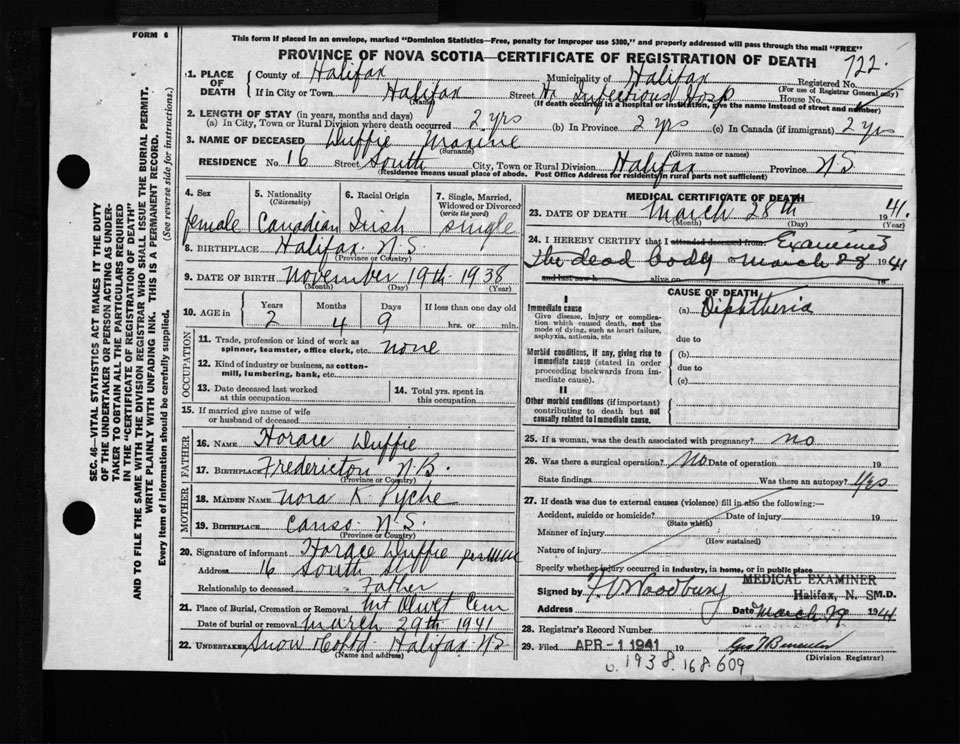 FORM 6
This form if placed in an envelope, marked "Dominion Statistics—Free, penalty for improper use $300," and properly addressed will pass through the mail "FREE"
PROVINCE OF NOVA SCOTIA—CERTIFICATE OF REGISTRATION OF DEATH
722.
1. PLACE OF DEATH
County of Halifax Municipality of Halifax Registered No.
(For use of Registrar General only)
If in City or Town Halifax Street Hx Infectious Hosp House No.
(Name) (If death occurred in a hospital or institution, give the name instead of street and number)
2. LENGTH OF STAY (in years, months and days)
(a) In City, Town or Rural Division where death occurred 2 yrs (b) In Province 2 yrs (c) In Canada (if immigrant) 2 yrs
3. NAME OF DECEASED Duffie Maxine
(Surname) (Given name or names)
RESIDENCE No. 16 Street South City, Town or Rural Division Halifax Province NS
(Residence means usual place of abode. Post Office Address for residents in rural parts not sufficient)
4. Sex female
5. Nationality (Citizenship) Canadian
6. Racial Origin Irish
7. Single, Married, Widowed or Divorced (write the word) single
8. BIRTHPLACE Halifax N.S.
(Province or Country)
9. DATE OF BIRTH November 19th 1938
(Month) (Day) (Year)
10. AGE Years 2 Months 4 Days 9 If less than one day old
hrs. or min.
OCCUPATION
11. Trade, profession or kind of work as spinner, teamster, office clerk, etc. none
12. Kind of industry or business, as cotton-mill, lumbering, bank, etc.
13. Date deceased last worked at this occupation
14. Total yrs. spent in this occupation
15. If married give name of wife or husband of deceased
FATHER
16. NAME Horace Duffie
17. BIRTHPLACE Fredericton N.B.
(Province or Country)
MOTHER
18. MAIDEN NAME Nora K. Pyche
19. BIRTHPLACE Canso N.S.
(Province or Country)
20. Signature of informant Horace Duffie per
Address 16 South St
Relationship to deceased Father
21. Place of Burial, Cremation or Removal Mt Olivet Cem
Date of burial or removal March 29th 1941
22. UNDERTAKER Snow Halifax NS
(Name and address)
MEDICAL CERTIFICATE OF DEATH
23. DATE OF DEATH March 28th 1941.
(Month) (Day) (Year)
24. I HEREBY CERTIFY that I attended deceased from: Examined
the dead body March 28 1941
and last saw h alive on 19
CAUSE OF DEATH
I
Immediate cause
Give disease, injury or complication which caused death, not the mode of dying, such as heart failure, asphyxia, asthenia, etc.
(a) Diptheria
due to
Morbid conditions, if any, giving rise to immediate cause (stated in order proceeding backwards from immediate cause).
(b)
due to
(c)
II
Other morbid conditions (if important) contributing to death but not causally related to Immediate cause.
25. If a woman, was the death associated with pregnancy? no
26. Was there a surgical operation? No Date of operation 19
State findings Was there an autopsy? Yes
27. If death was due to external causes (violence) fill in also the following:—
Accident, suicide or homicide? Date of injury 19
(State which)
Manner of injury
(How sustained)
Nature of injury
Specify whether injury occurred in industry, in home, or in public place
MEDICAL EXAMINER
Halifax, N. S.
Signed by F. V. Woodbury M.D.
Address Date March 29 1941
28. Registrar's Record Number
29. Filed APR - 1 1941 19
(Division Registrar)
1938. 168609
SEC. 46—VITAL STATISTICS ACT MAKES IT THE DUTY
OF THE UNDERTAKER OR PERSON ACTING AS UNDER-
TAKER TO OBTAIN ALL THE PARTICULARS REQUIRED
IN THE "CERTIFICATE OF REGISTRATION OF DEATH"
AND TO FILE THE SAME WITH THE DIVISION REGISTRAR WHO SHALL ISSUE THE BURIAL PERMIT.
WRITE PLAINLY WITH UNFADING INK. THIS IS A PERMANENT RECORD.
Every item of Information should be carefully supplied. (See reverse side for instructions.)